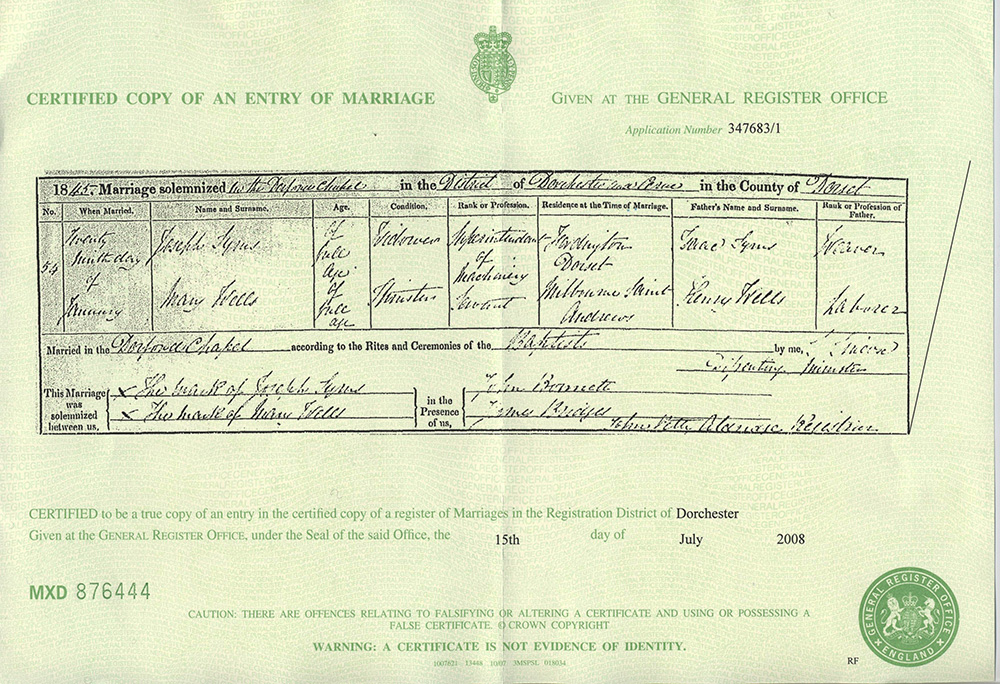 CERTIFIED COPY OF AN ENTRY OF MARRIAGE
GIVEN AT THE GENERAL REGISTER OFFICE
Application Number 347683/1
1845 Marriage solemnized in the Dorford Chapel in the District of Dorchester and Cerne in the County of Dorset
No. When Married. Name and Surname. Age. Condition. Rank or Profession. Residence at the Time of Marriage. Father's Name and Surname. Rank or Profession of Father.
54 Twenty ninth day of January
Joseph Syms of full age Widower Superintendant of Machinery Fordington Dorset Isaac Syms Weaver
Mary Wells of full age Spinster Servant Milbourne Saint Andrews Henry Wells Laborer
Married in the Dorford Chapel according to the Rites and Ceremonies of the Baptists by me,
Minister
This Marriage was solemnized between us,
X The mark of Joseph Syms
X The mark of Mary Wells
in the Presence of us,
John
James Bridges
John Registrar
CERTIFIED to be a true copy of an entry in the certified copy of a register of Marriages in the Registration District of Dorchester
Given at the GENERAL REGISTER OFFICE, under the Seal of the said Office, the 15th day of July 2008
MXD 876444
CAUTION: THERE ARE OFFENCES RELATING TO FALSIFYING OR ALTERING A CERTIFICATE AND USING OR POSSESSING A
FALSE CERTIFICATE. © CROWN COPYRIGHT
WARNING: A CERTIFICATE IS NOT EVIDENCE OF IDENTITY.
1007821 13448 10/07 3MSPSL 018034
RF
GENERAL REGISTER OFFICE
ENGLAND